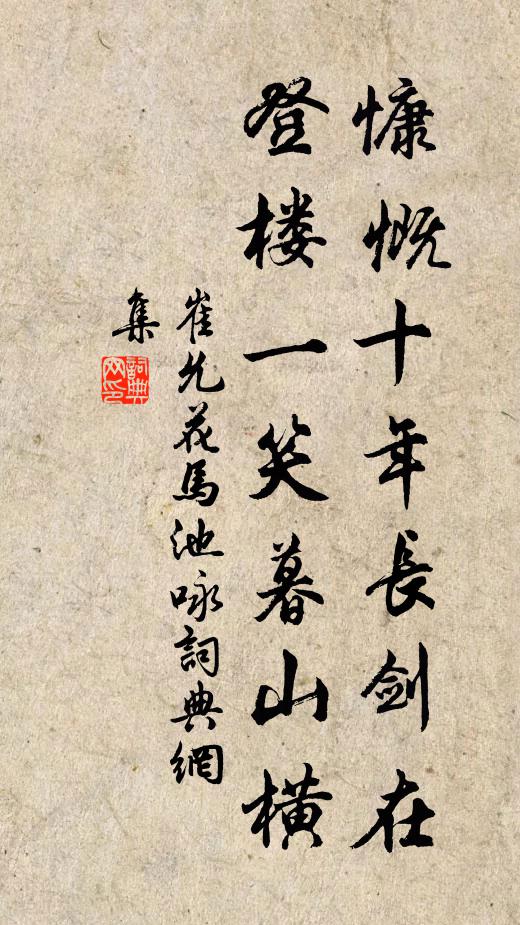 慷慨十年長劍在
登楼一笑暮山橫
崔允花馬池咏詞典網
集
詞典網印